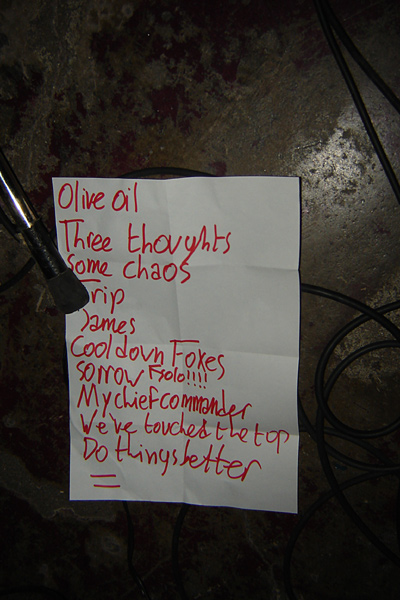 Olive oil
Three thoughts
Some chaos
Trip
James
Cool down Foxes
Sorrow Fsolo!!!!
My chief commander
We've touched the top
Do things better